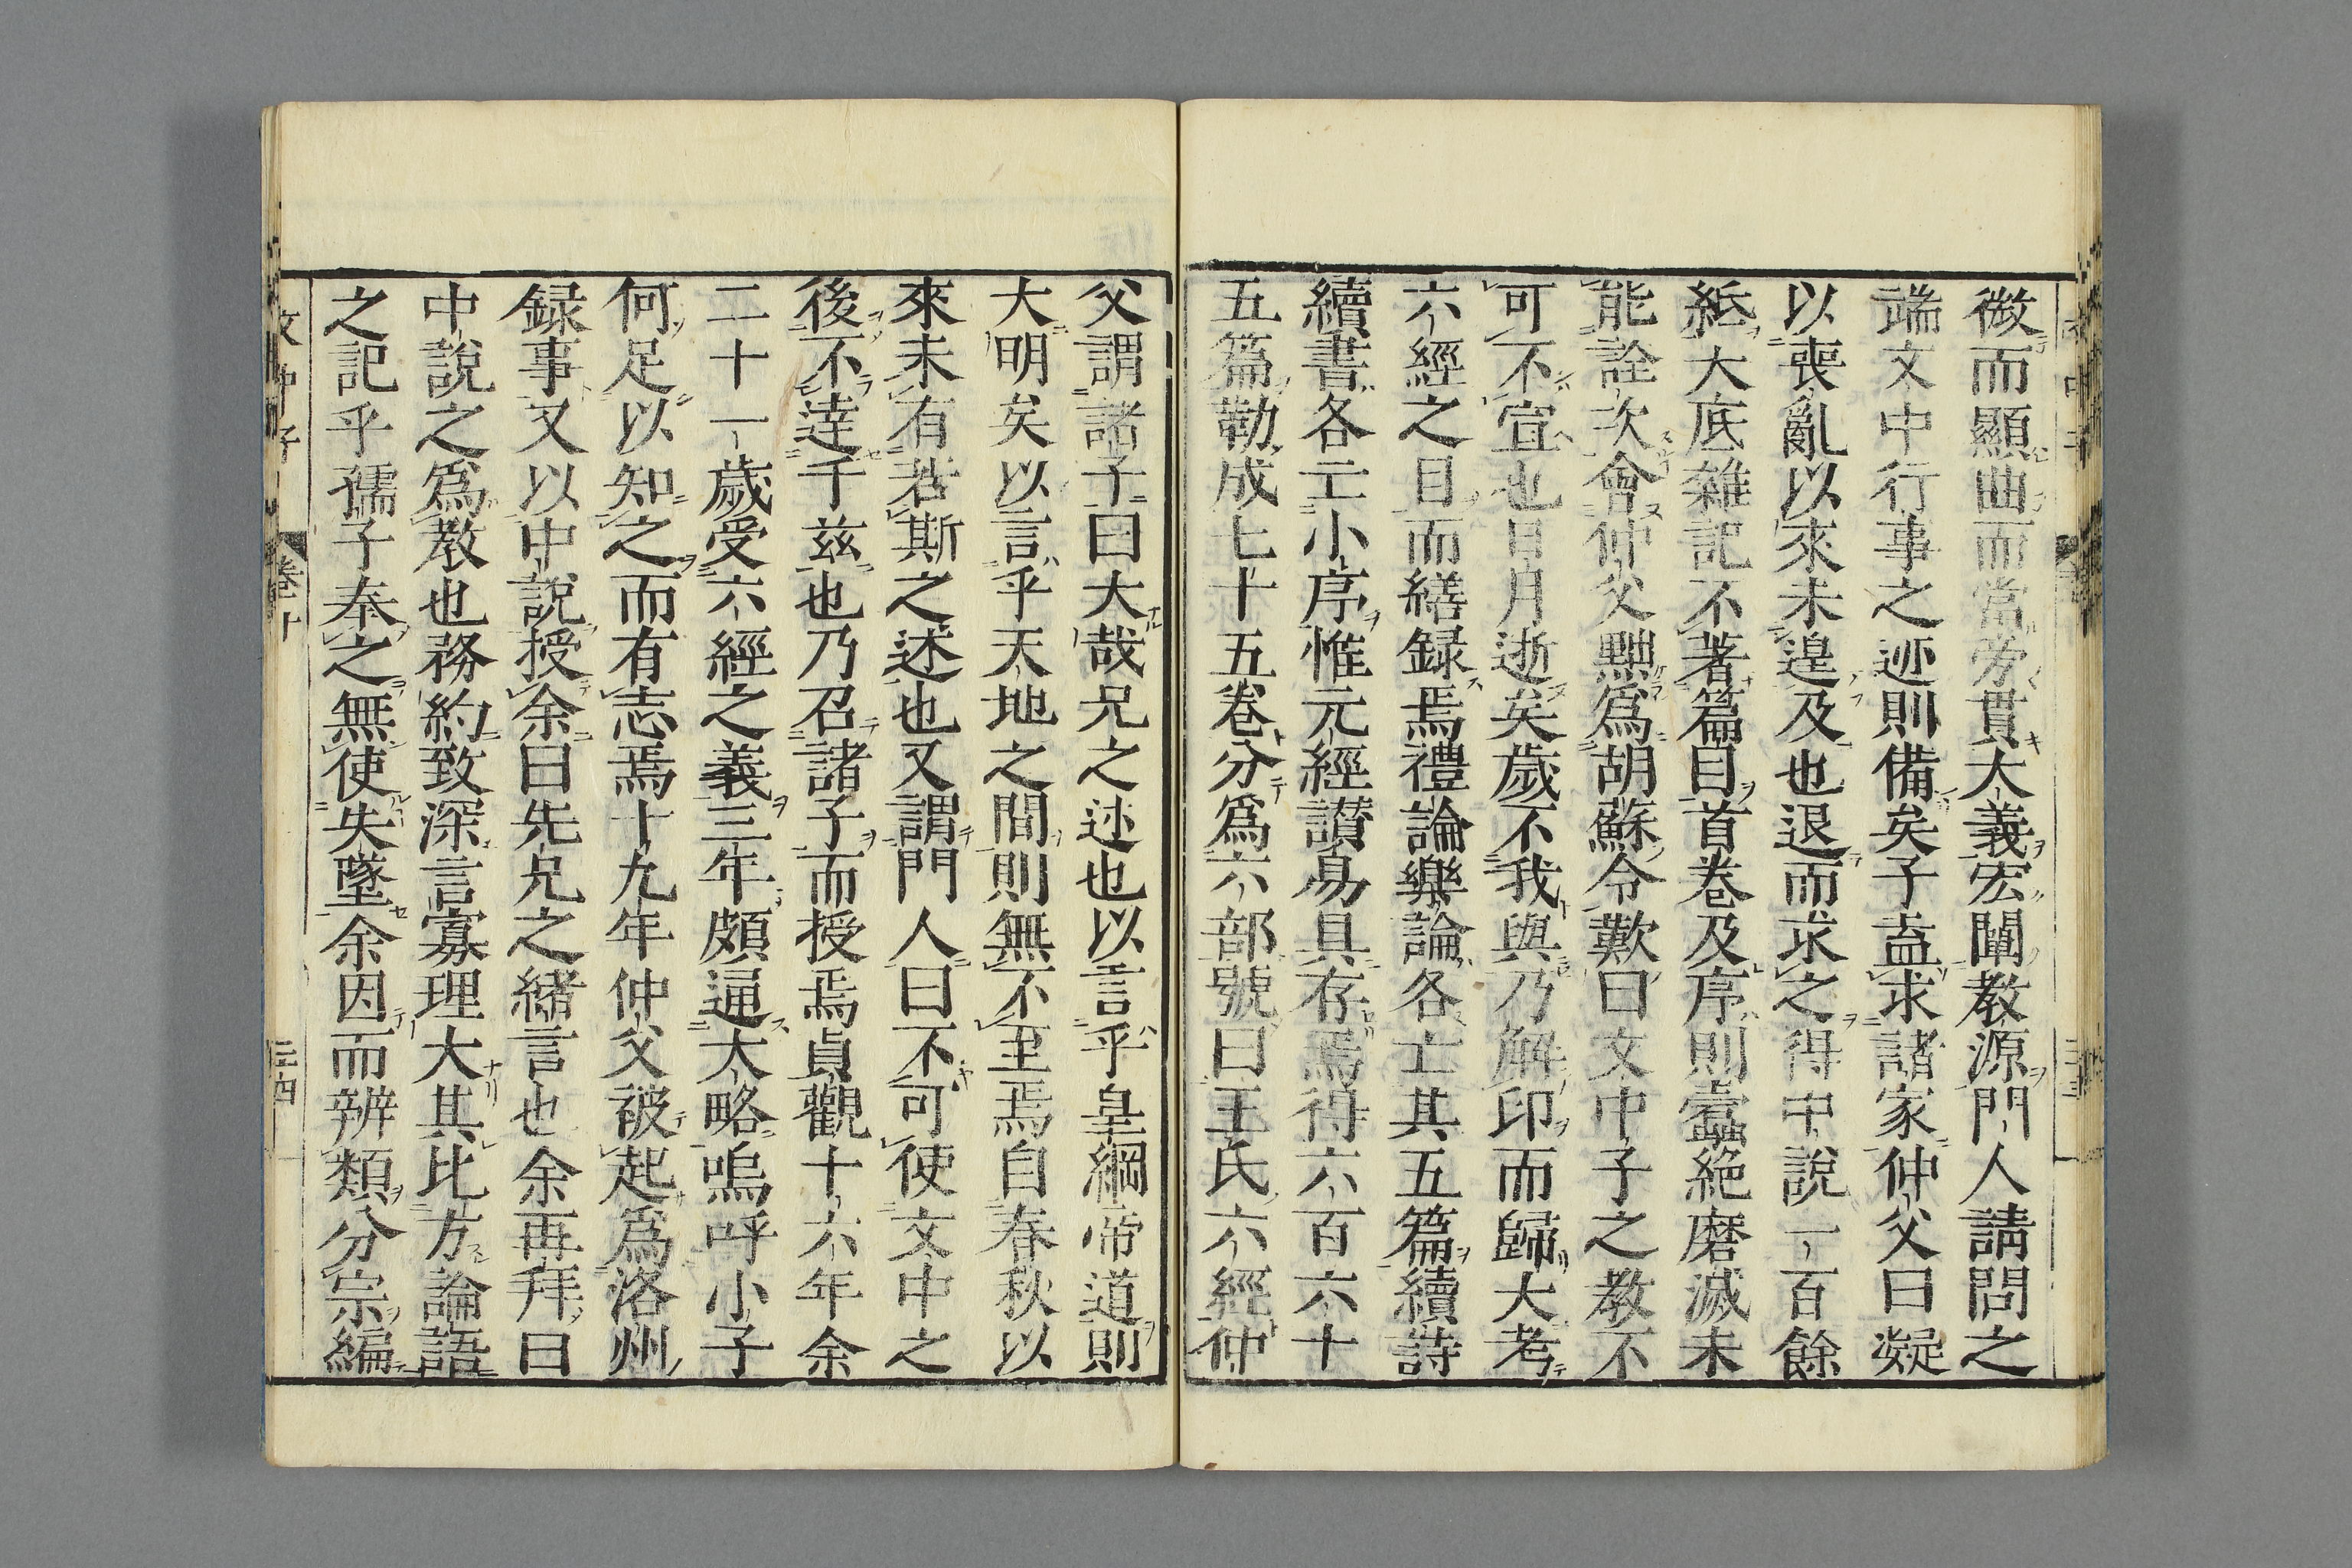 微而顯曲而當旁貫大義宏闡教源門人請問之
端文中行事之迹則備矣子盍求諸家仲父曰凝
以喪亂以來未遑及也退而求之得中說一百餘
紙大底雜記不著篇目首卷及序則蠹絶磨滅未
能詮次會仲父黜爲胡蘇令歎曰文中子之教不
可不宣也日月逝矣歲不我與乃解印而歸大考
六經之目而繕録焉禮論樂論各亡其五篇續詩
續書各亡小序惟元經讃易具存焉得六百六十
五篇勒成七十五卷分爲六部號曰王氏六經仲
父謂諸子曰大哉兄之述也以言乎皇綱帝道則
大明矣以言乎天地之間則無不至焉自春秋以
來未有若斯之述也又謂門人曰不可使文中之
後不達千茲也乃召諸子而授焉貞觀十六年余
二十一歲受六經之義三年頗通大略嗚呼小子
何足以知之而有志焉十九年仲父被起爲洛州
録事又以中說授余曰先兄之緒言也余再拜曰
中說之爲教也務約致深言寡理大其比方論語
之記乎孺子奉之無使失墜余因而辨類分宗編
文中子 卷十 三四